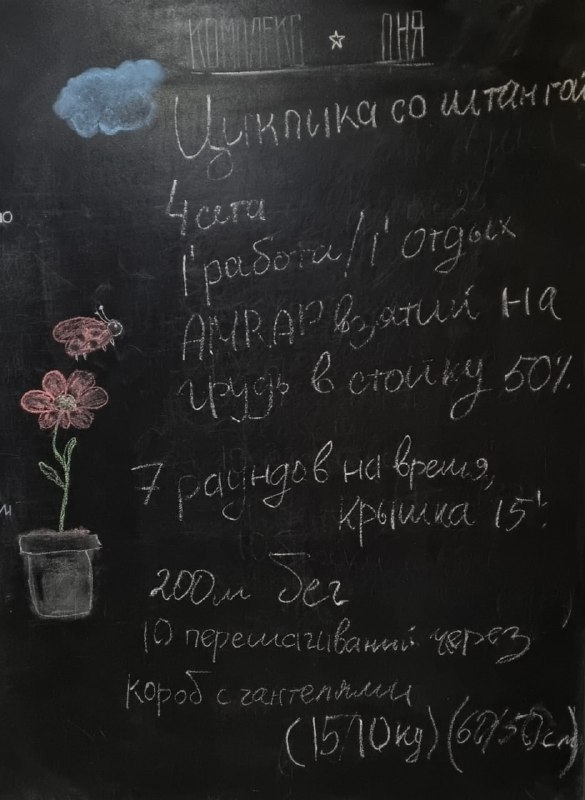 КОМПЛЕКС ☆ ДНЯ
Циклика со штангой
4 сета
1' работы / 1' отдых
AMRAP взятий на
грудь в стойку 50%
7 раундов на время,
крышка 15':
200м бег
10 перешагиваний через
короб с гантелями
(15/10kg) (60/50см)